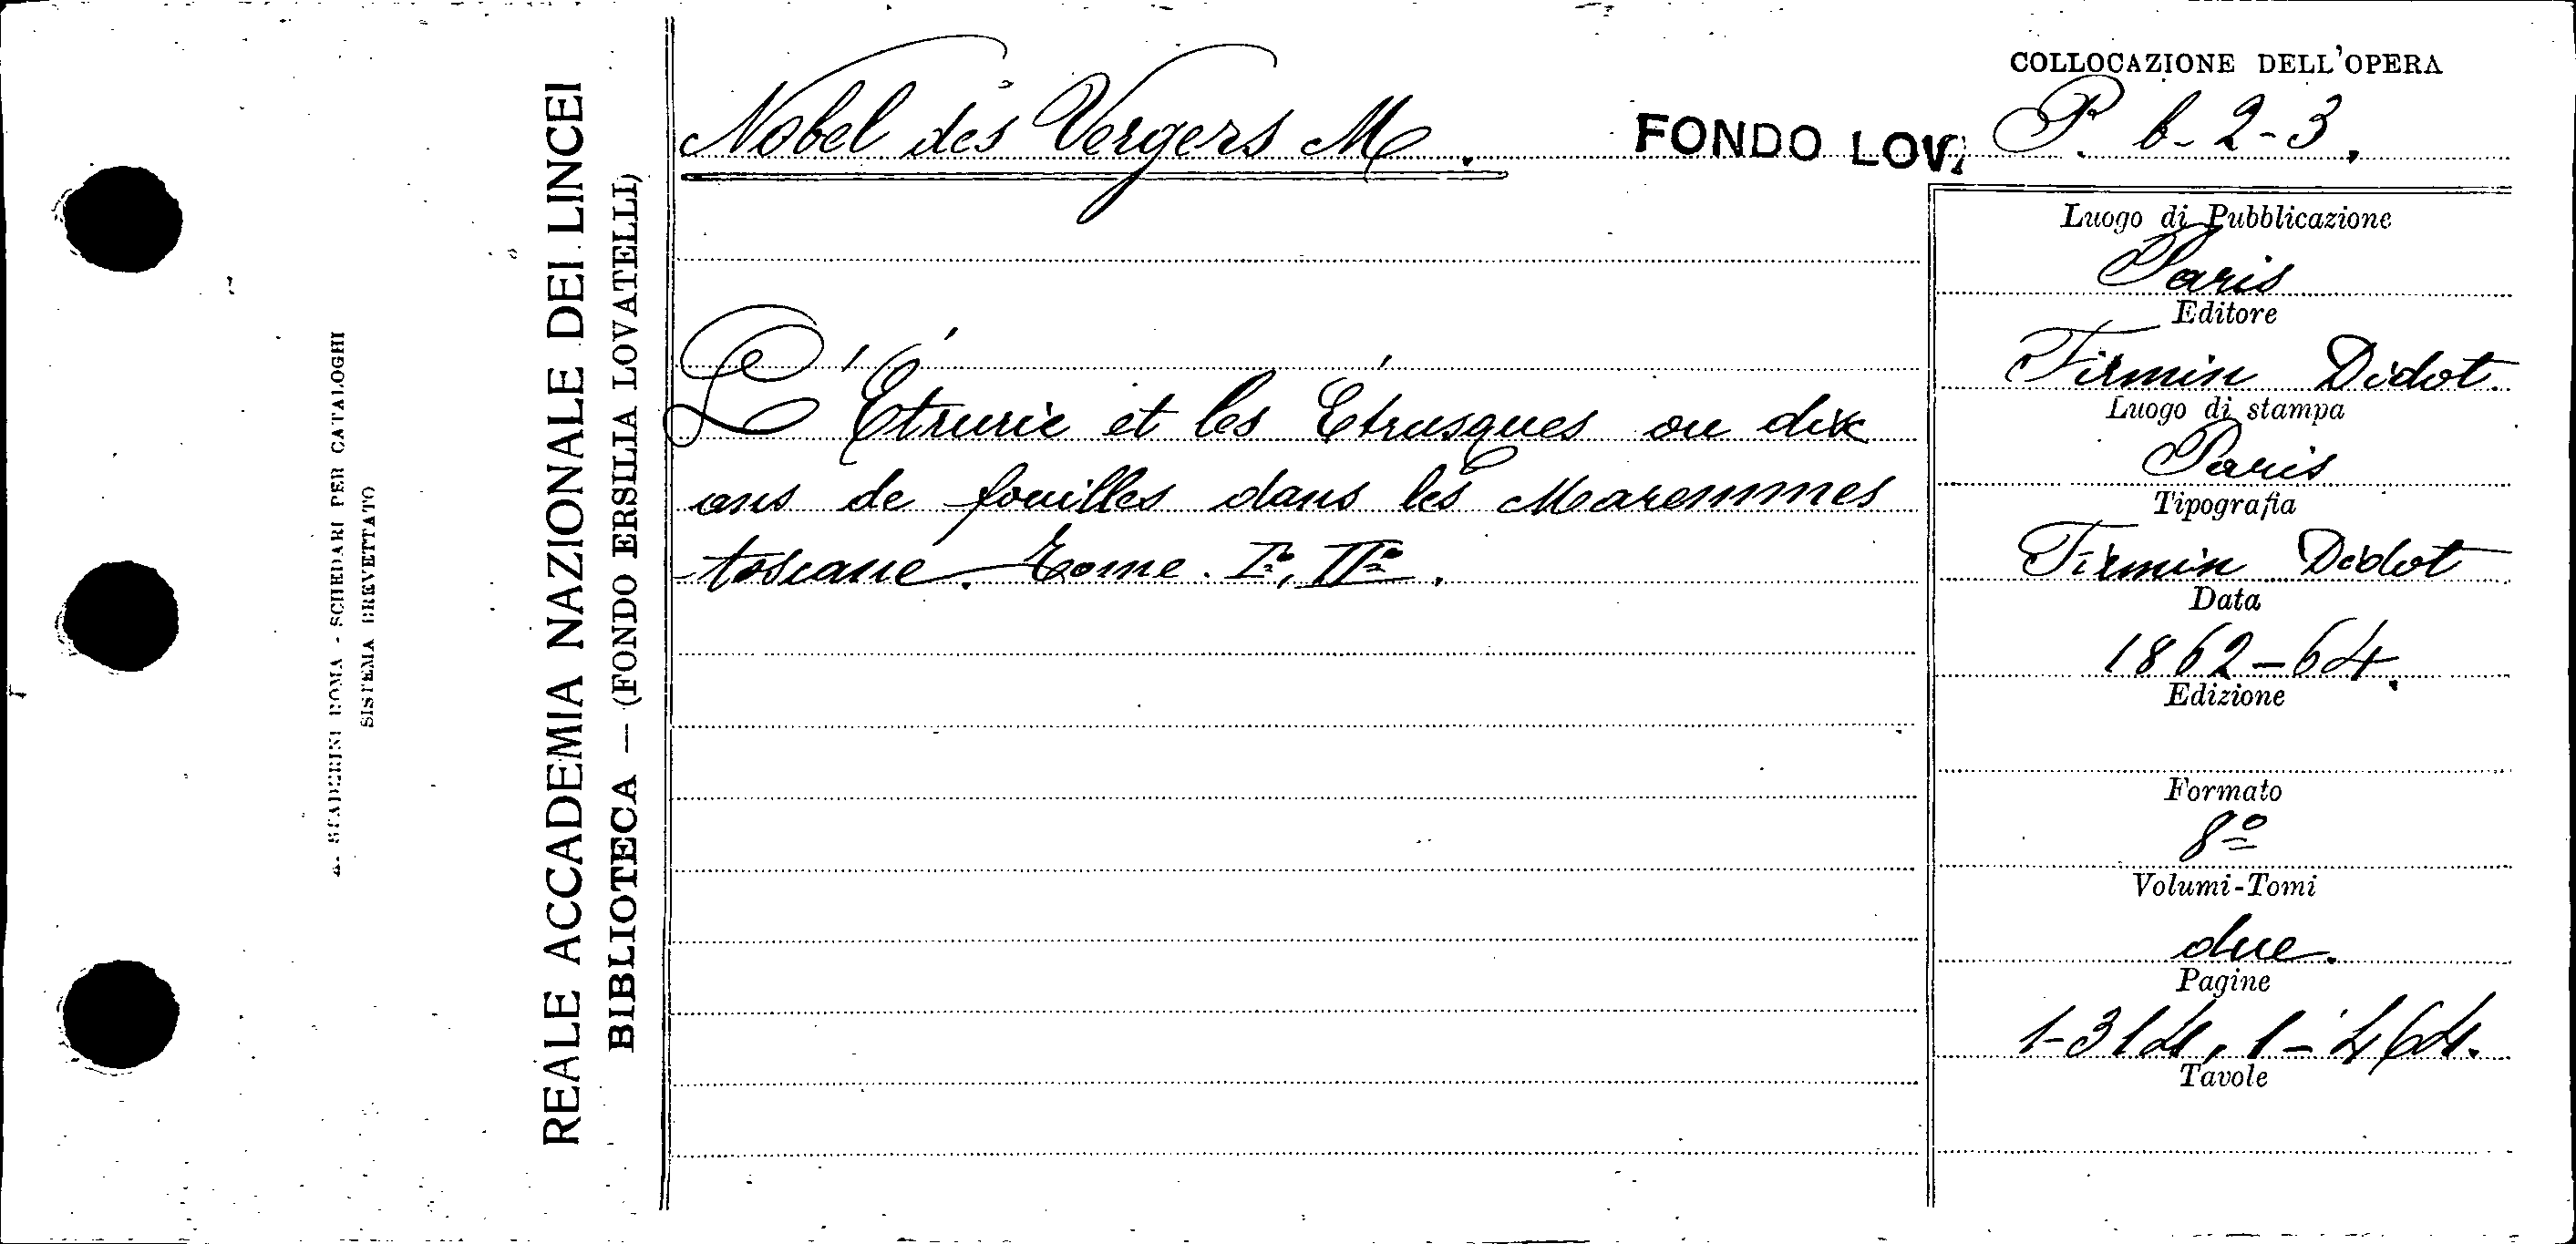 A. STADERINI ROMA - SCHEDARI PER CATALOGHI
SISTEMA BREVETTATO
REALE ACCADEMIA NAZIONALE DEI LINCEI
BIBLIOTECA — (FONDO ERSILIA LOVATELLI)
Nobel des Vergers M.
FONDO LOV.
COLLOCAZIONE DELL'OPERA
P. b. 2-3.
L'Étrurie et les Étrusques ou dix
ans de fouilles dans les Maremmes
toscane. Tome. I°, II°.
Luogo di Pubblicazione
Paris
Editore
Firmin Didot.
Luogo di stampa
Paris
Tipografia
Firmin Didot
Data
1862-64.
Edizione
Formato
8°
Volumi-Tomi
due.
Pagine
1-314, 1-464.
Tavole